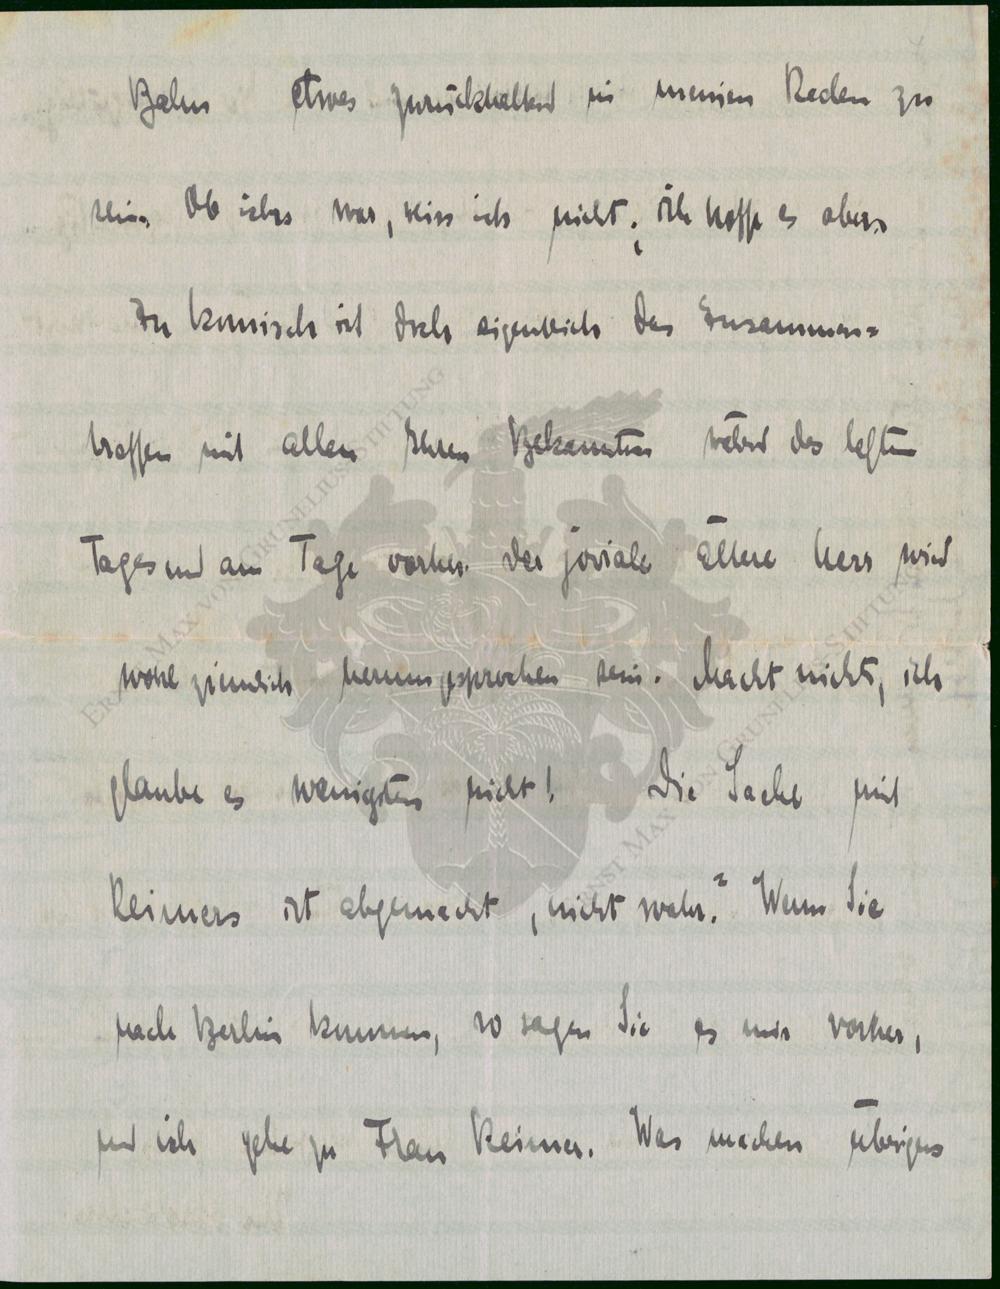 Bahn etwas zurückhaltend in meinen Reden zu
sein. Ob ichs war, weiss ich nicht; ich hoffe es aber.
Zu komisch ist doch eigentlich das Zusammen=
treffen mit allen Ihren Bekannten des letzten
Tages und am Tage vorher. Der joviale ältere Herr wird
wohl ziemlich herumgesprochen sein. Macht nichts, ich
glaube es wenigstens nicht! Die Sache mit
Reimers ist abgemacht, nicht wahr? Wenn Sie
nach Berlin kommen, so sagen Sie es mir vorher,
und ich gehe zu Frau Reimer. Was machen übrigens
ERNST MAX VON GRUNELIUS-STIFTUNG
ERNST MAX VON GRUNELIUS-STIFTUNG